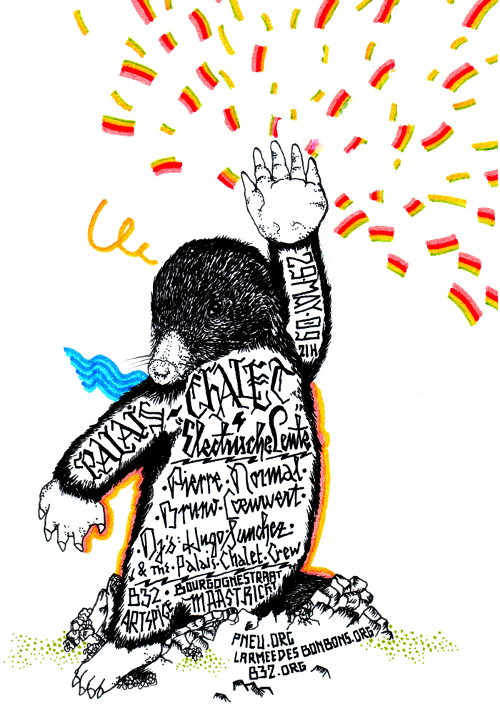 29 MAY.09
21H
PALAIS-
CHALET
"Electrische Leute"
Pierre. Normal.
.Bruno. Coeuvert.
.Djs. Hugo. Sanchez.
& THE. Palais. Chalet. Crew
B32. BOURGOGNESTRAAT
MAASTRICHT
PNEU.ORG
LARMEEDESBONBONS.ORG
B32.ORG